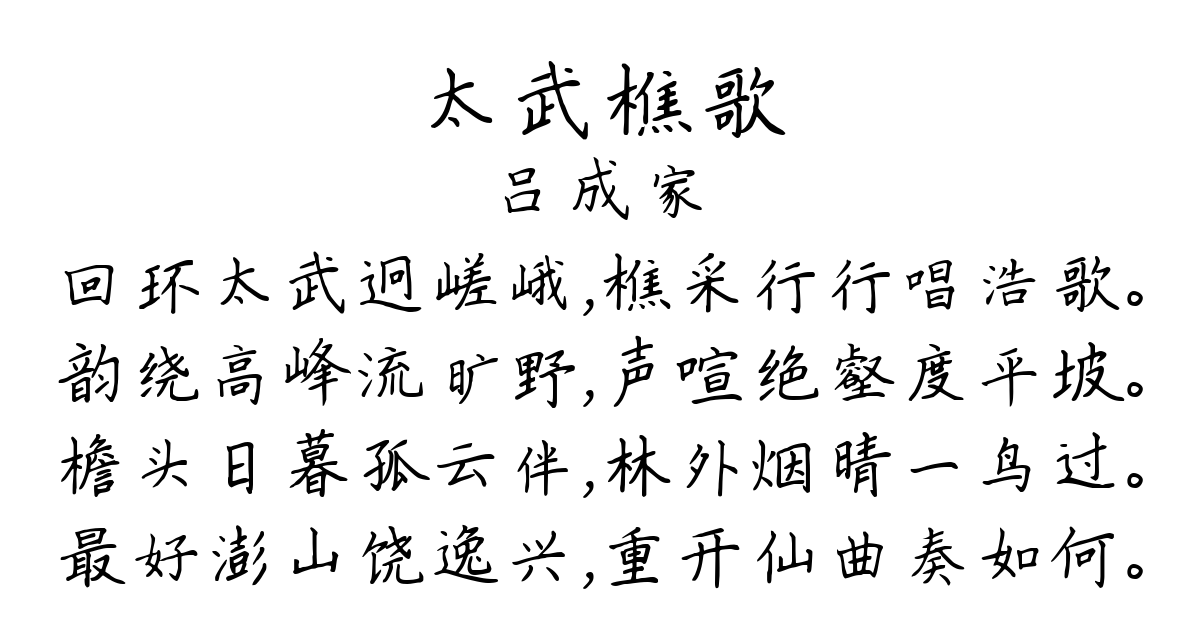 太武樵歌
吕成家
回环太武迥嵯峨,樵采行行唱浩歌。
韵绕高峰流旷野,声喧绝壑度平坡。
檐头日暮孤云伴,林外烟晴一鸟过。
最好澎山饶逸兴,重开仙曲奏如何。